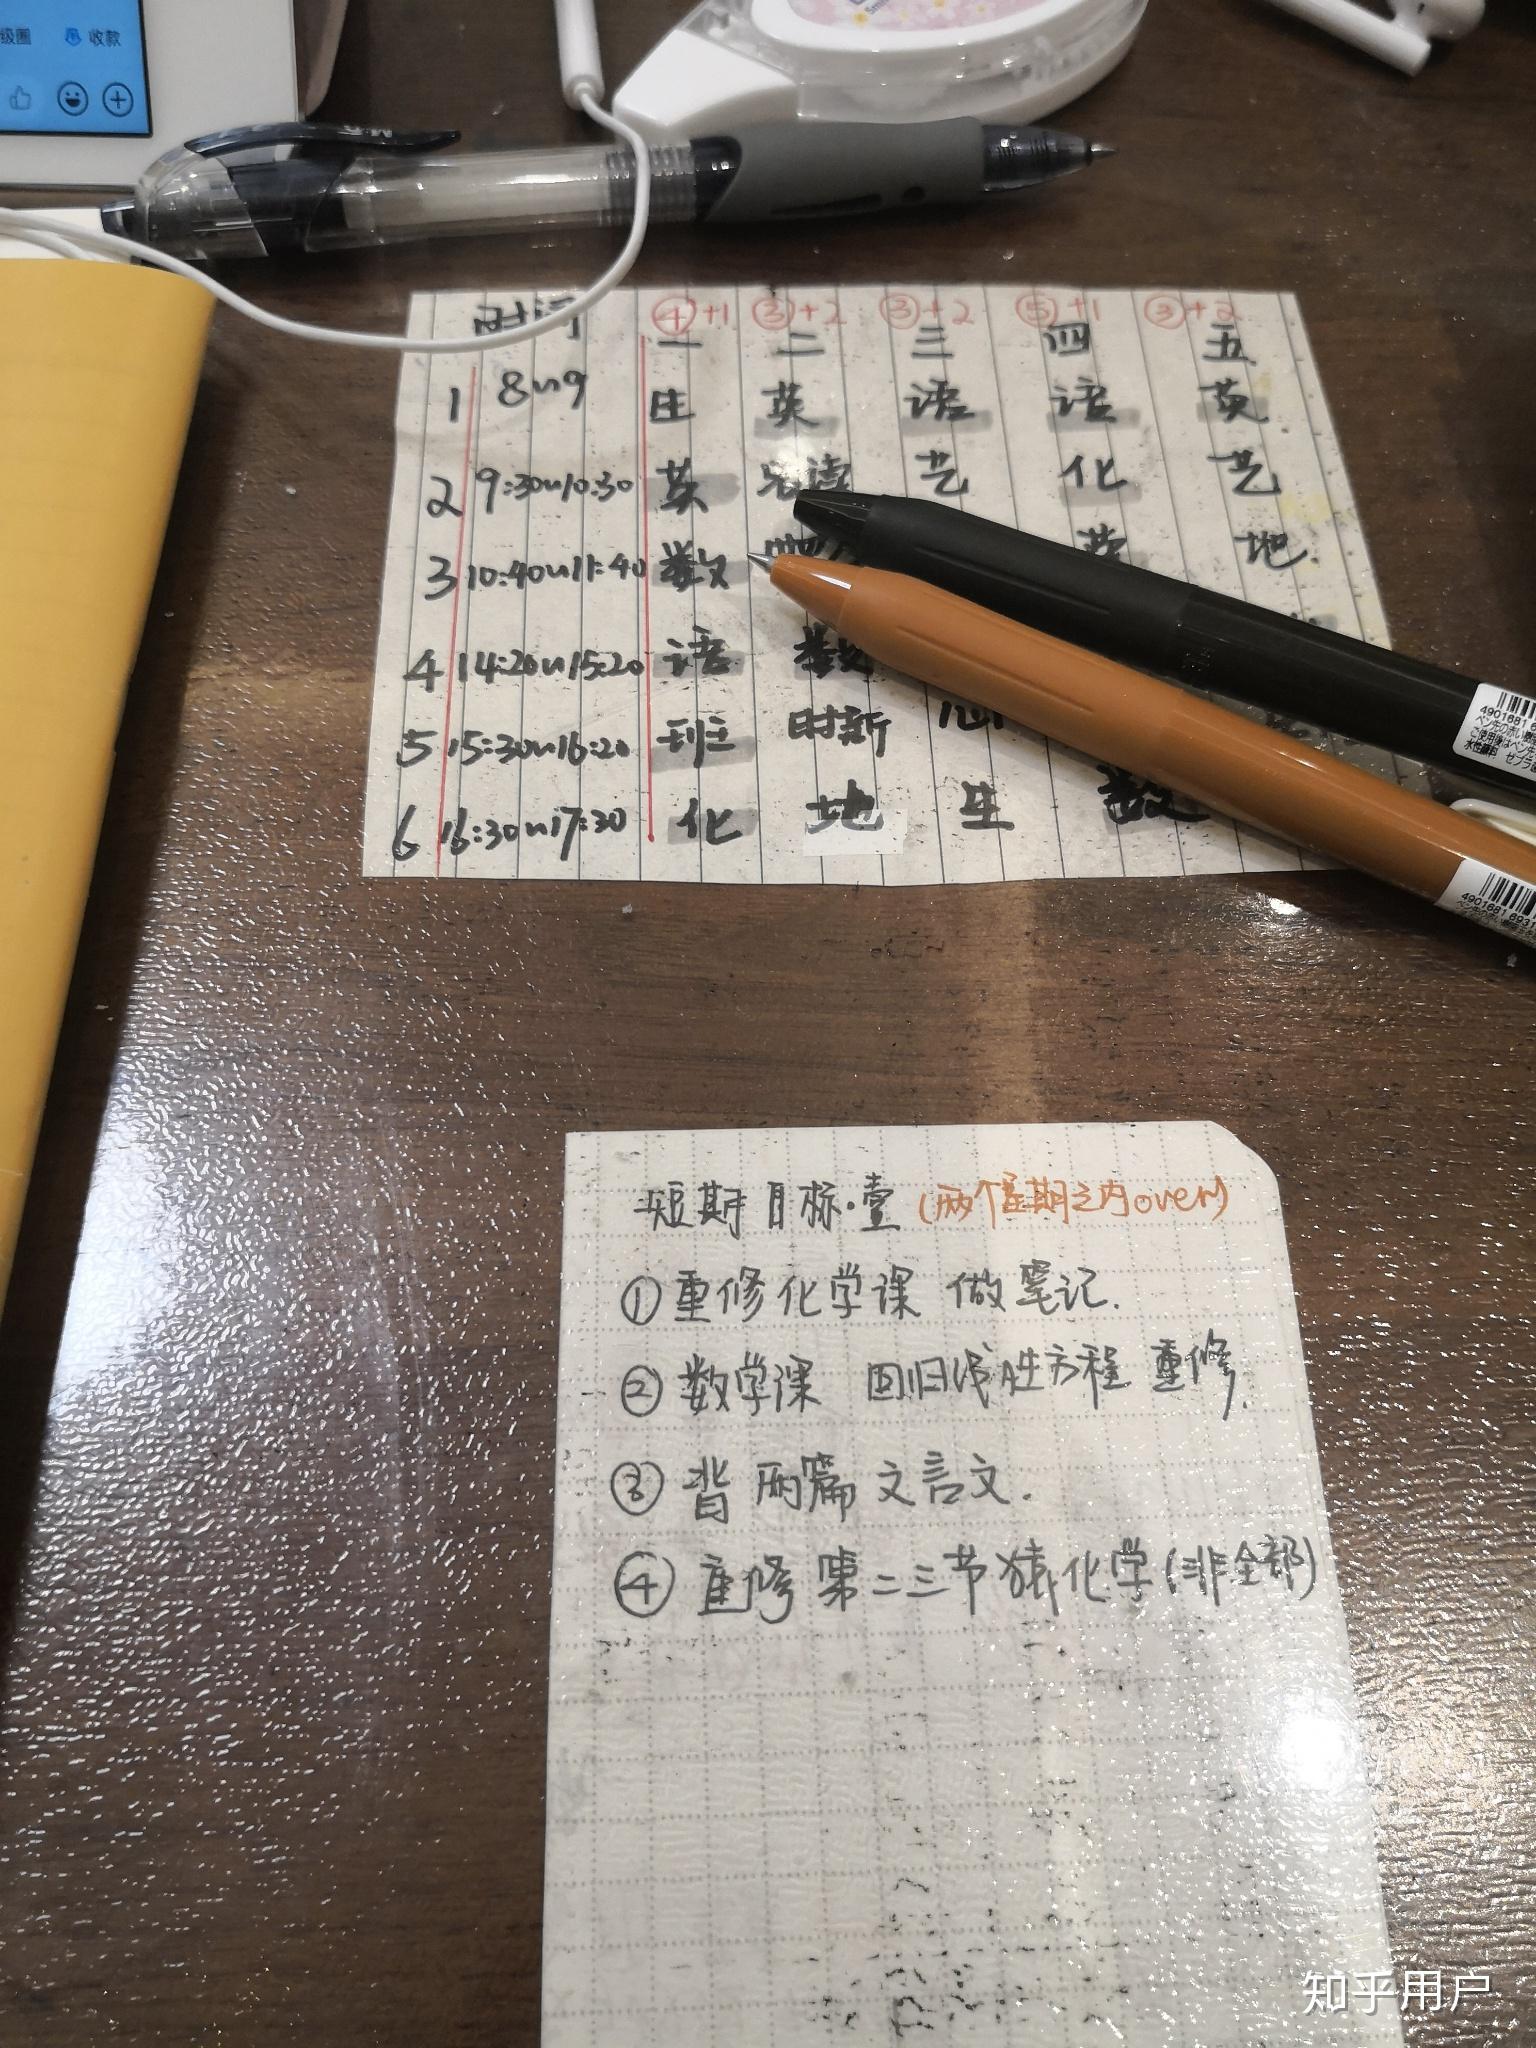 级圈 收款
时间 ④+1 ③+2 ③+2 ⑤+1 ③+2
一 二 三 四 五
1 8~9 生 英 语 语 英
2 9:30~10:30 英 艺 化 艺
3 10:40~11:40 数 地
4 14:20~15:20 语 数
5 15:30~16:20 班 时新
6 16:30~17:30 化 地 生 数
短期目标·壹 (两个星期之内over)
①重修化学课 做笔记.
②数学课 回归线性方程 重修.
③背 两篇 文言文.
④重修 第二三节 猿化学(非全部)
知乎用户